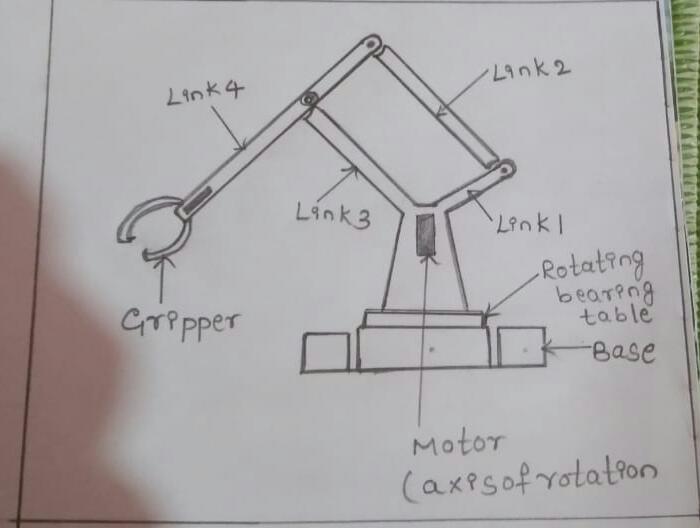 Link 4
Link 2
Link 3
Link 1
Gripper
Rotating
bearing
table
Base
Motor
(axis of rotation